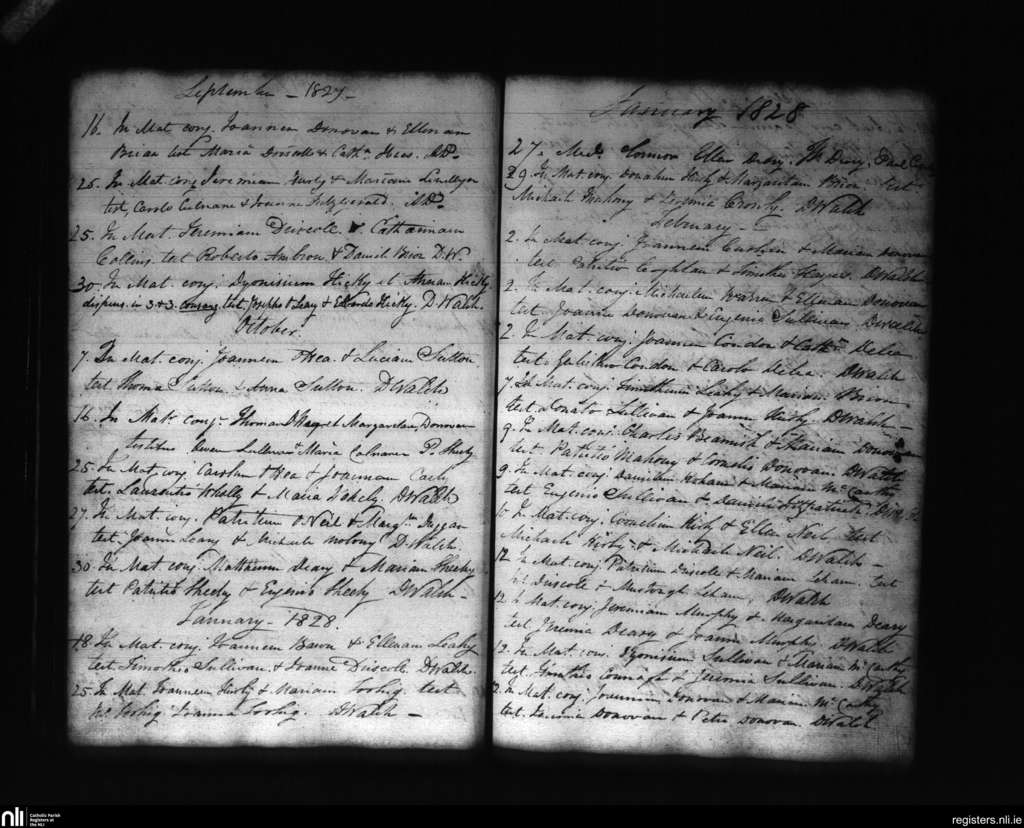 September - 1827 -
16. In Mat. conj. Joannem Donovan & Ellenam
Brian test Maria Driscoll & Cath. Heas. DW.
25. In Mat. conj. Jeremiam Hurly & Mariam
test, Carolo Culnane & Joanne Fitzgerald. DW.
25. In Mat. Jeremiam Driscole & Catharinam
Collins test Roberto Ambrose & Daniel Brior D.W.
30. In Mat. conj. Dyonisium Hicky et Annam Hicky
dispens. in 3 & 3. consang. test Leary & Edvardo Hicky. D Walsh.
October.
7. In Mat. conj. Joannem Hea. & Luciam Sutton
test Thoma Sutton & Anna Sutton. D Walsh
16. In Mat. conj. Thomam & Margaretam Donovan
testibus Owen Sullivan & Maria P. Sheehy
25. In Mat. conj. Hea & Joannam
test. Laurentio Whelly & Maria D Walsh
27. In Mat. conj. Patritium O Neil & Marg. Duggan
test. Joanne Leary & Michaele Molony D Walsh.
30. In Mat. conj. Mathaeum Deary & Mariam Sheehy
test Patritio Sheehy & Eugenio Sheehy D Walsh -
January - 1828.
18. In Mat. conj. Joannem Baron & Ellenam Leahy
test. Timotheo Sullivan. & Joanne Driscole D Walsh.
25. In Mat. Joannem Hurly & Mariam test
Joanna D Walsh -
January 1828
27. Ellen Deasy.
29. In Mat. conj. Donatum Hurly & Margaritam Brior. test
Michaele Mahony & Jeremia Crowly. D Walsh
February -
2. In Mat. conj. Joannem & Mariam Donovan
test Coghlan & Timotheo D Walsh
2. In Mat. conj. Michaelem Warren & Ellenam Donovan
test. Joanne Donovan & Eugenio Sullivan. D Walsh
2. In Mat. conj. Joannem Condon & Cath. Delea
test. Condon & Carolo Delea. D Walsh
7. In Mat. conj. Timotheum Leahy & Mariam Brior
test. Donato Sullivan & Joanne Hurly D Walsh -
9. In Mat. conj. Charles Beamish & Mariam Donovan
test. Patritio Mahony & Cornelio Donovan. D Walsh
9. In Mat. conj. Danielem & Mariam McCarthy
test Eugenio Sullivan & Daniele Fitzpatrick.
10. In Mat. conj. Cornelium Kirby & Ellen Neil test
Michaele Kirby & Michaele Neil. D Walsh -
12. In Mat. conj. Patritium Driscole & Mariam Leham. test
Driscole & Murtogh Leham, D Walsh
12. In Mat. conj. Jeremiam Murphy & Margaritam Deary
test Jeremia Deary & Joanne Murphy D Walsh
12. In Mat. conj. Dyonisium Sullivan & Mariam McCarthy
test. Timotheo & Jeremia Sullivan. D Walsh
12. In Mat. conj. Donovan & Mariam McCarthy
test. Jeremia Donovan & Petro Donovan D Walsh
nli Catholic Parish
Registers at
the NLI
registers.nli.ie